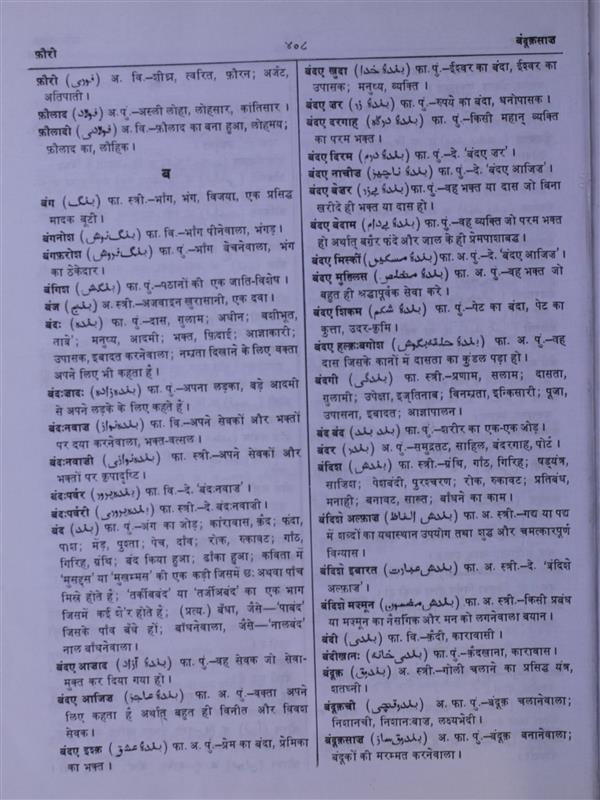 फ़ौरी
४०८
बंदूक़साज़
फ़ौरी (فوری) अ. वि.–शीघ्र, त्वरित, फ़ौरन; अर्जंट,
अतिपाती।
फ़ौलाद (فولاد) अ. पुं.–अस्ली लोहा, लोहसार, कांतिसार।
फ़ौलादी (فولادی) अ. वि.–फ़ौलाद का बना हुआ, लोहमय;
फ़ौलाद का, लौहिक।
ब
बंग (بنگ) फा. स्त्री.–भाँग, भंग, विजया, एक प्रसिद्ध
मादक बूटी।
बंगनोश (بنگ نوش) फा. वि.–भाँग पीनेवाला, भंगड़।
बंगफ़रोश (بنگ فروش) फा. पुं.–भाँग बेचनेवाला, भंग
का ठेकेदार।
बंगिश (بنگش) फा. पुं.–पठानों की एक जाति-विशेष।
बंज (بنج) अ. स्त्री.–अजवाइन खुरासानी, एक दवा।
बंदः (بندہ) फा. पुं.–दास, गुलाम; अधीन; वशीभूत,
ताबे'; मनुष्य, आदमी; भक्त, फ़िदाई; आज्ञाकारी;
उपासक, इबादत करनेवाला; नम्रता दिखाने के लिए वक्ता
अपने लिए भी कहता है।
बंदःज़ादः (بندہ زادہ) फा. पुं.–अपना लड़का, बड़े आदमी
से अपने लड़के के लिए कहते हैं।
बंदःनवाज़ (بندہ نواز) फा. वि.–अपने सेवकों और भक्तों
पर दया करनेवाला, भक्त-वत्सल।
बंदःनवाज़ी (بندہ نوازی) फा. स्त्री.–अपने सेवकों और
भक्तों पर कृपादृष्टि।
बंदःपर्वर (بندہ پرور) फा. वि.–दे. 'बंदःनवाज़'।
बंदःपर्वरी (بندہ پروری) फा. स्त्री.–दे. बंदःनवाज़ी।
बंद (بند) फा. पुं.–अंग का जोड़; कारावास, क़ैद; फंदा,
पाश; मेंड़, पुश्ता; पेच, दाँव; रोक, रुकावट; गाँठ,
गिरिह, ग्रंथि; बंद किया हुआ; ढाँका हुआ; कविता में
'मुसद्दस' या 'मुख़म्मस' की एक कड़ी जिसमें छः अथवा पाँच
मिस्रे होते हैं; 'तर्कीबबंद' या 'तर्जीअबंद' का एक भाग
जिसमें कई शे'र होते हैं; (प्रत्य.) बँधा, जैसे—'पाबंद'
जिसके पाँव बँधे हों; बाँधनेवाला, जैसे—'नालबंद'
नाल बाँधनेवाला।
बंदए आज़ाद (بندۂ آزاد) फा. पुं.–वह सेवक जो सेवा-
मुक्त कर दिया गया हो।
बंदए आजिज़ (بندۂ عاجز) फा. अ. पुं.–वक्ता अपने
लिए कहता है अर्थात् बहुत ही विनीत और विवश
सेवक।
बंदए इश्क़ (بندۂ عشق) फा. अ. पुं.–प्रेम का बंदा, प्रेमिका
का भक्त।
बंदए ख़ुदा (بندۂ خدا) फा. पुं.–ईश्वर का बंदा, ईश्वर का
उपासक; मनुष्य, व्यक्ति।
बंदए ज़र (بندۂ زر) फा. पुं.–रुपये का बंदा, धनोपासक।
बंदए दरगाह (بندۂ درگاہ) फा. पुं.–किसी महान् व्यक्ति
का परम भक्त।
बंदए दिरम (بندۂ درم) फा. पुं.–दे. 'बंदए ज़र'।
बंदए नाचीज़ (بندۂ ناچیز) फा. पुं.–दे. 'बंदए आजिज़'।
बंदए बेज़र (بندۂ بےزر) फा. पुं.–वह भक्त या दास जो बिना
ख़रीदे ही भक्त या दास हो।
बंदए बेदाम (بندۂ بےدام) फा. पुं.–वह व्यक्ति जो परम भक्त
हो अर्थात् बग़ैर फंदे और जाल के ही प्रेमपाशबद्ध।
बंदए मिस्कीं (بندۂ مسکیں) फा. अ. पुं.–दे. 'बंदए आजिज़'।
बंदए मुख़्लिस (بندۂ مخلص) फा. अ. पुं.–वह भक्त जो
बहुत ही श्रद्धापूर्वक सेवा करे।
बंदए शिकम (بندۂ شکم) फा. पुं.–पेट का बंदा, पेट का
कुत्ता, उदर-कृमि।
बंदए हल्क़ःबगोश (بندۂ حلقہ بگوش) फा. अ. पुं.–वह
दास जिसके कानों में दासता का कुंडल पड़ा हो।
बंदगी (بندگی) फा. स्त्री.–प्रणाम, सलाम; दासता,
गुलामी; उपेक्षा, इज्तिनाब; विनम्रता, इन्किसारी; पूजा,
उपासना, इबादत; आज्ञापालन।
बंद बंद (بند بند) फा. पुं.–शरीर का एक-एक जोड़।
बंदर (بندر) अ. पुं.–समुद्रतट, साहिल, बंदरगाह, पोर्ट।
बंदिश (بندش) फा. स्त्री.–ग्रंथि, गाँठ, गिरिह; षड्यंत्र,
साज़िश; पेशबंदी, पुरश्चरण; रोक, रुकावट; प्रतिबंध,
मनाही; बनावट, साख़्त; बाँधने का काम।
बंदिशे अल्फ़ाज़ (بندش الفاظ) फा. अ. स्त्री.–गद्य या पद्य
में शब्दों का यथास्थान उपयोग तथा शुद्ध और चमत्कारपूर्ण
विन्यास।
बंदिशे इबारत (بندش عبارت) फा. अ. स्त्री.–दे. 'बंदिशे
अल्फ़ाज़'।
बंदिशे मज़्मून (بندش مضمون) फा. अ. स्त्री.–किसी प्रबंध
या मज़्मून का नैसर्गिक और मन को लगनेवाला बयान।
बंदी (بندی) फा. वि.–क़ैदी, कारावासी।
बंदीख़ानः (بندی خانہ) फा. पुं.–क़ैदख़ाना, कारावास।
बंदूक़ (بندوق) अ. स्त्री.–गोली चलाने का प्रसिद्ध यंत्र,
शतघ्नी।
बंदूक़ची (بندوقچی) अ. फा. पुं.–बंदूक़ चलानेवाला;
निशानची, निशानःबाज़, लक्ष्यभेदी।
बंदूक़साज़ (بندوق ساز) अ. फा. पुं.–बंदूक़ बनानेवाला;
बंदूक़ों की मरम्मत करनेवाला।